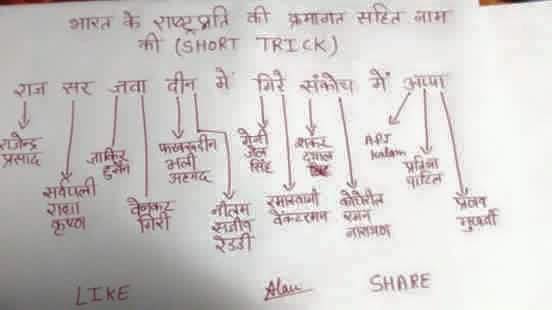 भारत के राष्ट्रप्रति की क्रमागत सहित नाम
की (SHORT TRICK)
राज सर जवा दीन में गिरे संकोच में अप्पा
राजेन्द्र
प्रसाद
सर्वपली
राधा
कृष्ण
जाकिर
हुसैन
वेनकट
गिरी
फखरुद्दीन
अली
अहमद
नीलम
संजीव
रेडडी
ज्ञेनी
जेल
सिंह
रमास्वामी
वेंकटरमन
शंकर
दयाल
कोचेरील
रमन
नारायण
APJ
Kalam
प्रतिभा
पाटिल
प्रणव
मुखर्जी
LIKE
SHARE